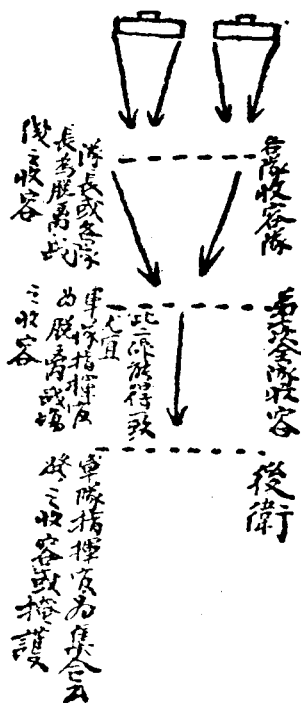 各隊收容隊
隊長或各隊
長為脫离戰
線之收容
全隊收容
此二
能得一致
尤宜
軍隊指揮官
為脫离戰場
之收容
後衛
軍隊指揮官為集合
之收容或掩護